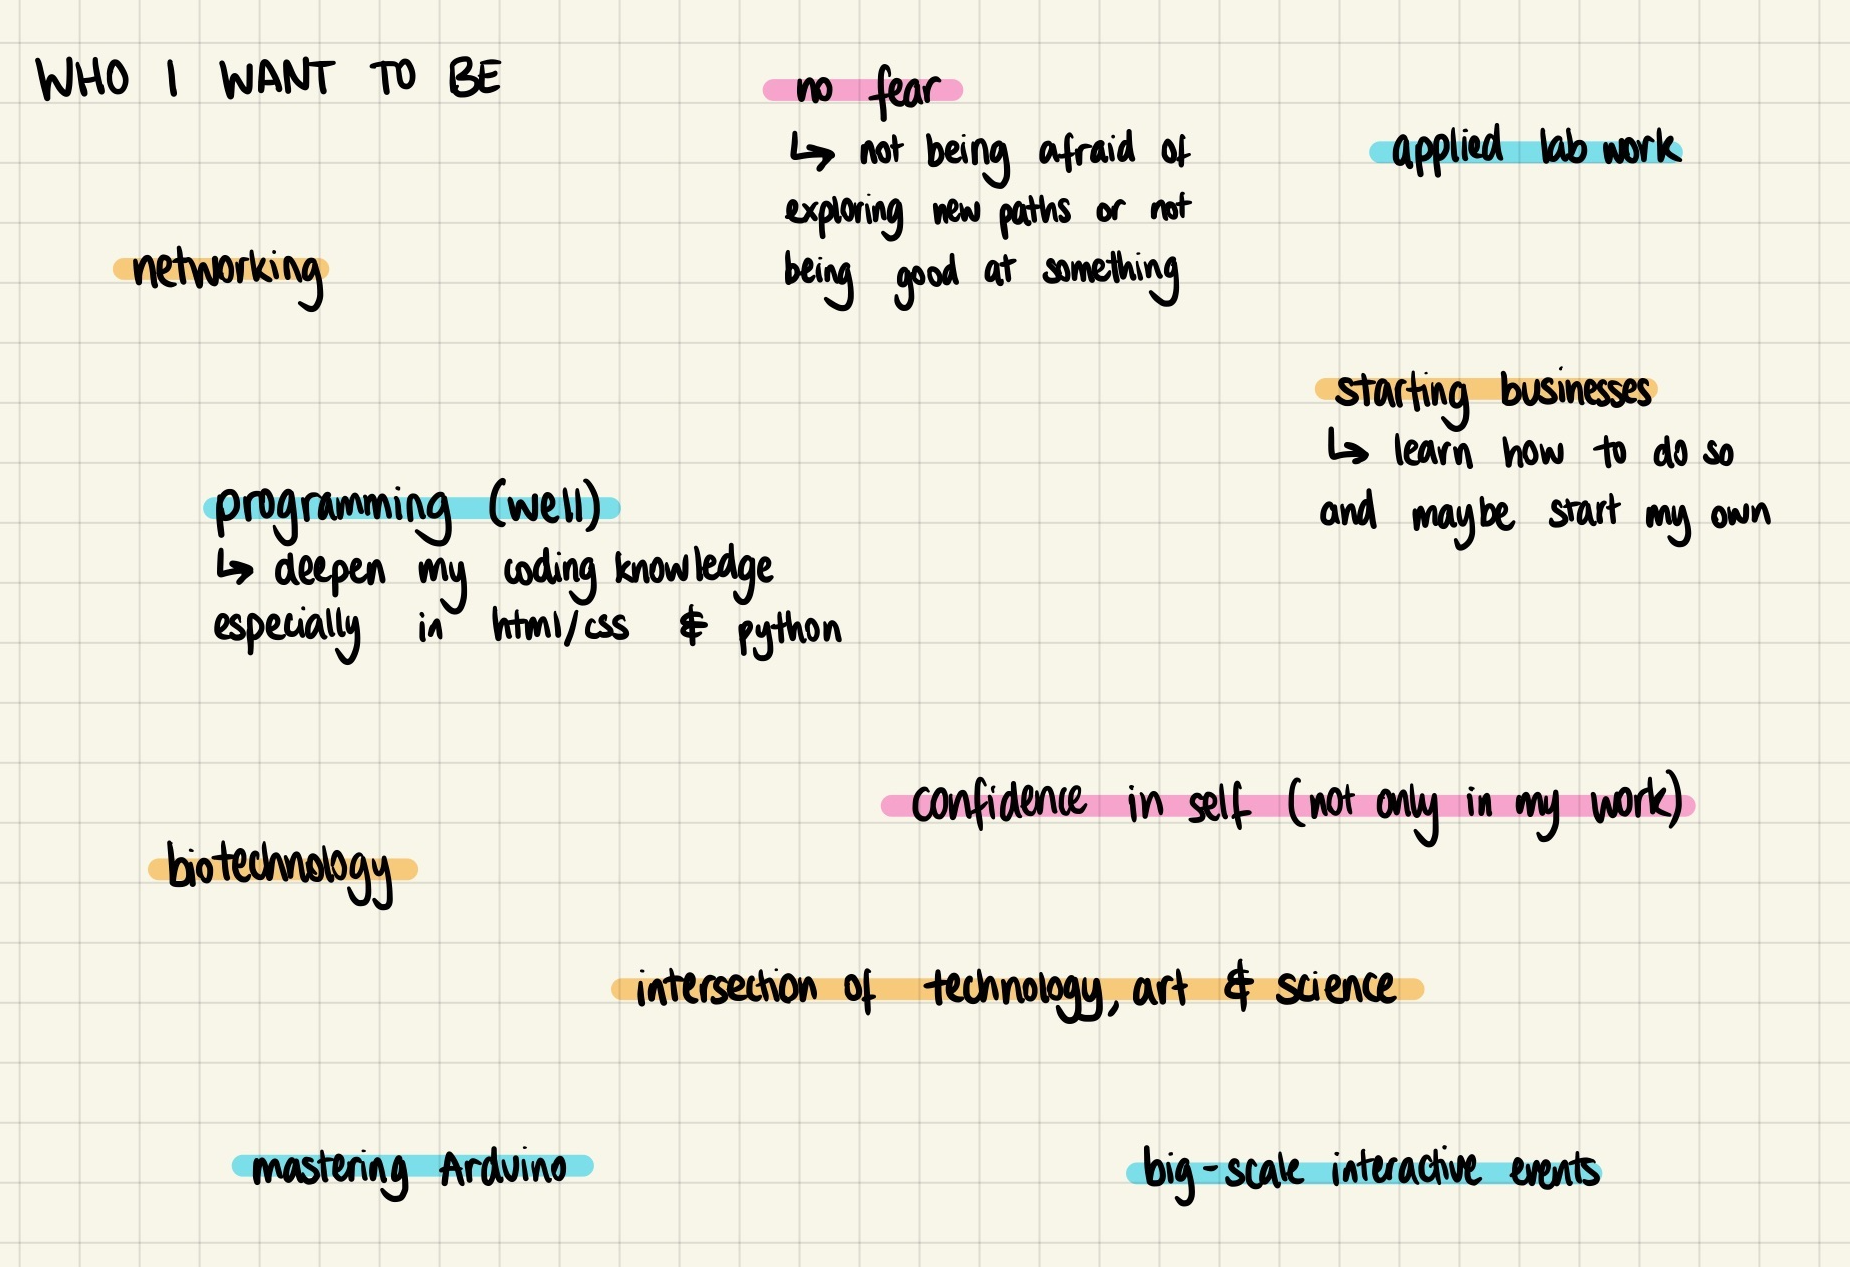 WHO I WANT TO BE
no fear
↳ not being afraid of
exploring new paths or not
being good at something
applied lab work
networking
starting businesses
↳ learn how to do so
and maybe start my own
programming (well)
↳ deepen my coding knowledge
especially in html/css & python
confidence in self (not only in my work)
biotechnology
intersection of technology, art & science
mastering Arduino
big-scale interactive events